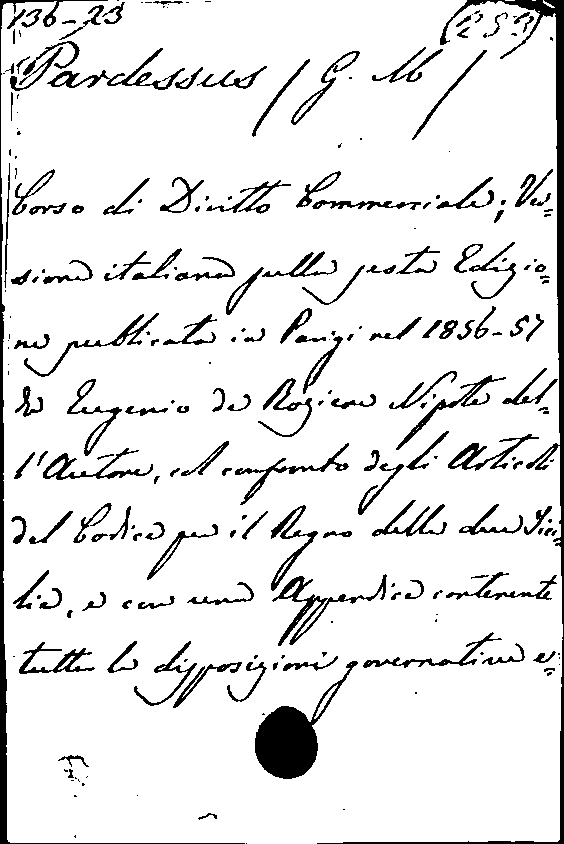 136-23 (253)
Pardessus / G. M /
Corso di Diritto Commerciale; Ver=
sione italiana sulla sesta Edizio=
ne pubblicata in Parigi nel 1856-57
da Eugenio de Roziere Nipote del=
l'Autore, col confronto degli Articoli
del Codice per il Regno delle due Sici=
lie, e con una Appendice contenente
tutte le disposizioni governative e=